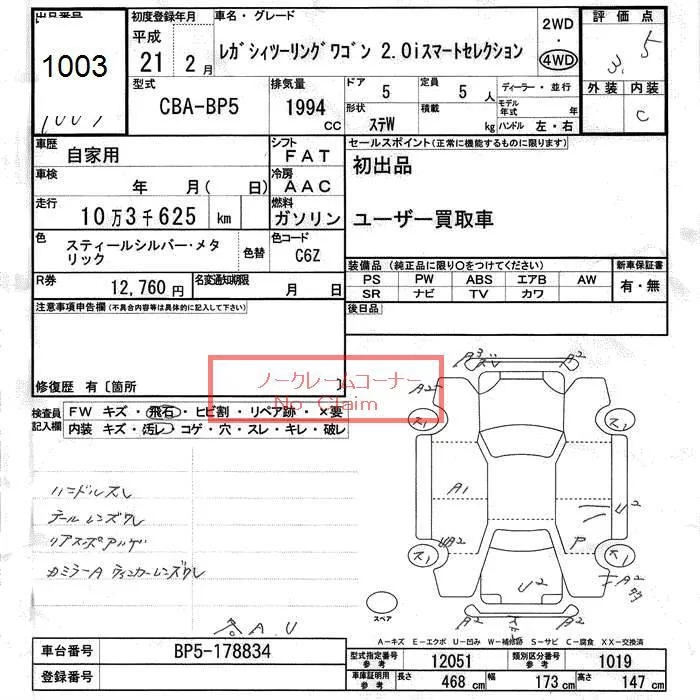 出品番号
1003
1001
初度登録年月
平成
21 2 月
車名・グレード
レガシィツーリングワゴン 2.0iスマートセレクション
2WD
・
4WD
評価点
3.5
外装 内装
C
型式
CBA-BP5
排気量
1994
CC
ドア
5
定員
5 人
形状
ステW
積載
kg
ディーラー・並行
モデル年式 年
ハンドル 左・右
車歴
自家用
シフト
FAT
車検
年 月( 日)
冷房
AAC
走行
10万3千625 km
燃料
ガソリン
色
スティールシルバー・メタリック
色替
色コード
C6Z
R券
12,760 円
名変通知期限
月 日
セールスポイント(正常に機能するものに限ります)
初出品
ユーザー買取車
装備品(純正品に限り〇をつけてください)
新車保証書
PS PW ABS エアB AW
SR ナビ TV カワ
有・無
後日品
注意事項申告欄(不具合内容等は具体的に記入して下さい)
修復歴 有〔箇所 〕
ノークレームコーナー
No Claim
検査員記入欄
FW キズ・飛石・ヒビ割・リペア跡・×要
内装 キズ・汚レ・コゲ・穴・スレ・キレ・破レ
ハンドルスレ
テールレンズワレ
リアスポアルゲ
カミラーA ウィンカーレンズワレ
A.U
A2
A2
A2
ス1
ス1
A1
U2
UB2
P
ス1
ス1
U2
A2
A2
A2
スペア
A-キズ E-エクボ U-凹み W-補修跡 S-サビ C-腐食 XX-交換済
車台番号
BP5-178834
登録番号
型式指定番号
参考
12051
類別区分番号
参考
1019
車庫証明用
参考
長さ
468 cm
幅
173 cm
高さ
147 cm